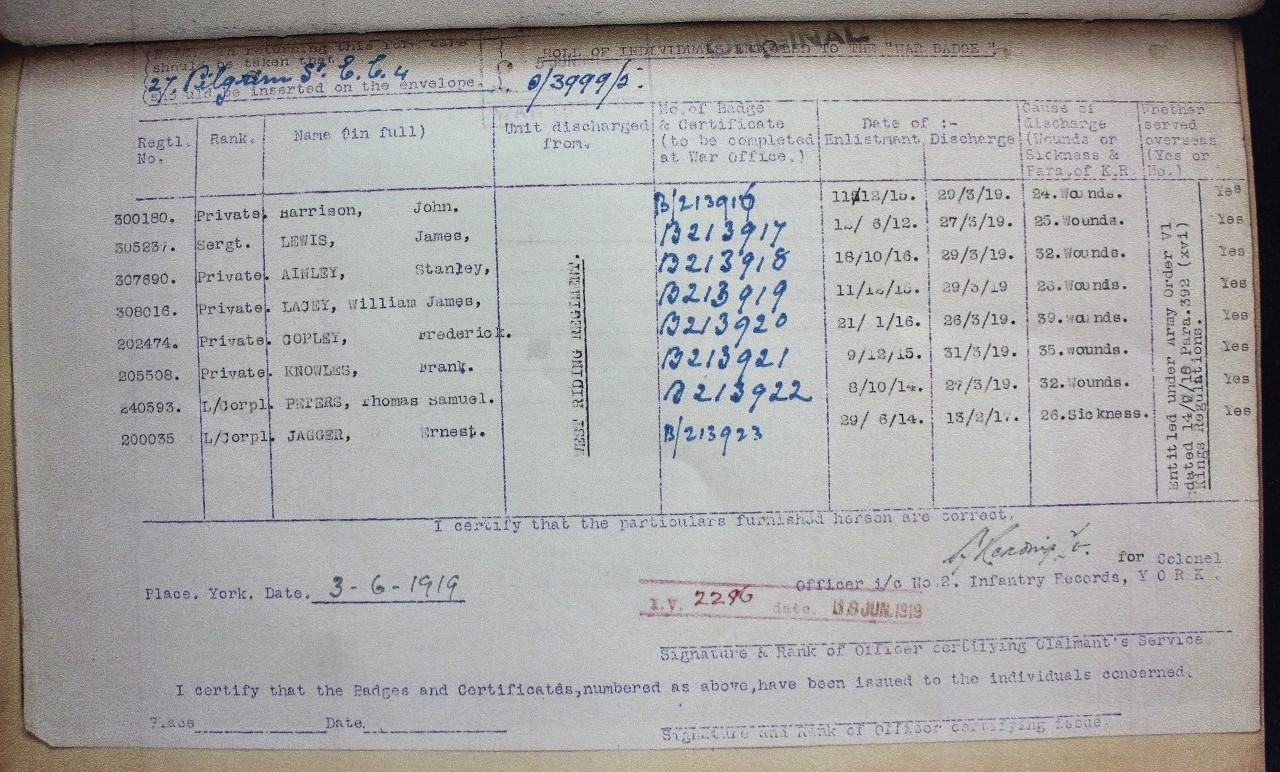 ROLL OF INDIVIDUALS ENTITLED TO THE "WAR BADGE"
(in returning this form care
(should be taken that
27, Pilgrim St. E.C.4
(should be inserted on the envelope. 0/3999/5.
Regtl. No. Rank. Name (in full) Unit discharged from. No. of Badge & Certificate (to be completed at War Office.) Date of :- Enlistment Discharge Cause of discharge (Wounds or Sickness & Para. of K.R. Whether served overseas (Yes or No.)
300180. Private. Harrison, John. B/213916 12/15. 29/3/19. 24.Wounds. Yes
Sergt. LEWIS, James, B213917 6/12. 27/3/19. 25.Wounds. Yes
307690. Private. AINLEY, Stanley, B213918 18/10/16. 29/3/19. 32.Wounds. Yes
308016. Private. LACEY, William James, B213919 29/3/19 Wounds. Yes
202474. Private. COPLEY, Frederick. B213920 21/ 1/16. 26/3/19. 39.wounds. Yes
205508. Private. KNOWLES, Frank. B213921 9/12/15. 31/3/19. 35.wounds. Yes
240593. L/Corpl. PETERS, Thomas Samuel. B213922 8/10/14. 27/3/19. 32.Wounds. Yes
200035 L/Corpl. JAGGER, Ernest. B/213923 29/ 6/14. 13/2/17. 26.Sickness. Yes
WEST RIDING REGIMENT.
Entitled under Army Order VI
dated Para.392 (xvi)
Kings Regulations.
I certify that the particulars furnished hereon are correct.
for Colonel
Place. York. Date. 3-6-1919 Officer i/c No.2. Infantry Records, Y O R K .
I.V. 2296 date. JUN.1919
Signature & Rank of Officer certifying Claimant's Service
I certify that the Badges and Certificates,numbered as above,have been issued to the individuals concerned.
Place Date.
Signature and Rank of Officer certifying issue.